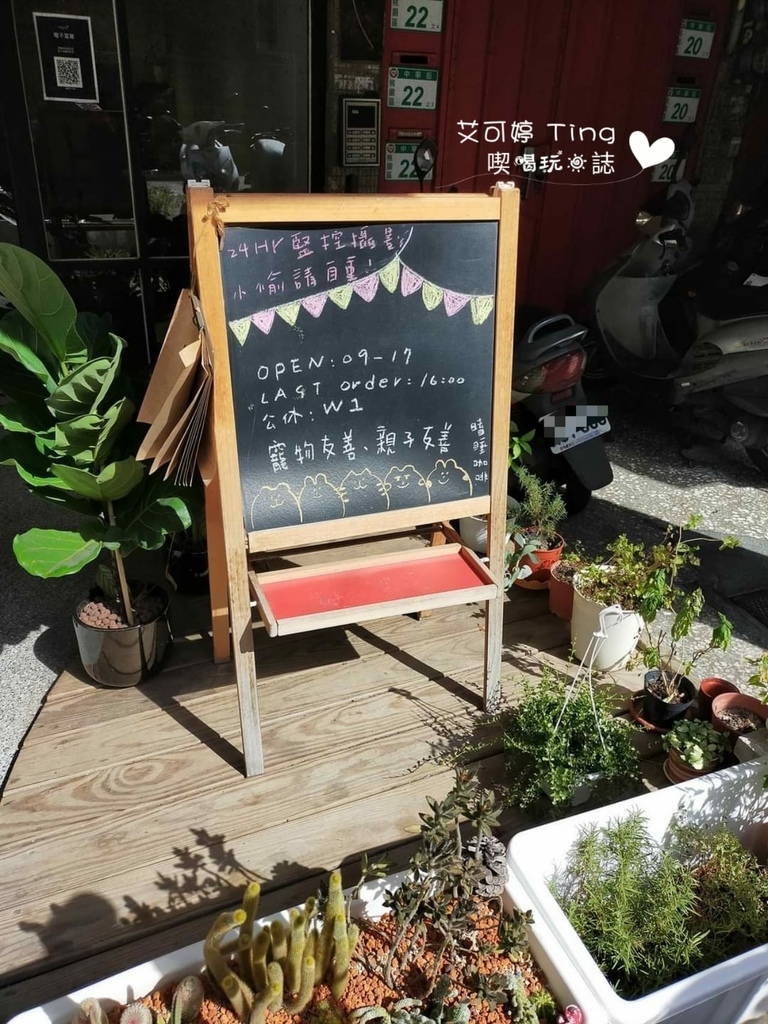 22
中華街
22
22
20
20
20
艾可婷 Ting
喫喝玩樂誌
24Hr 監控攝影
小偷請自重!
OPEN:09-17
LAST order:16:00
公休:W1
寵物友善、親子友善
瞌睡咖啡